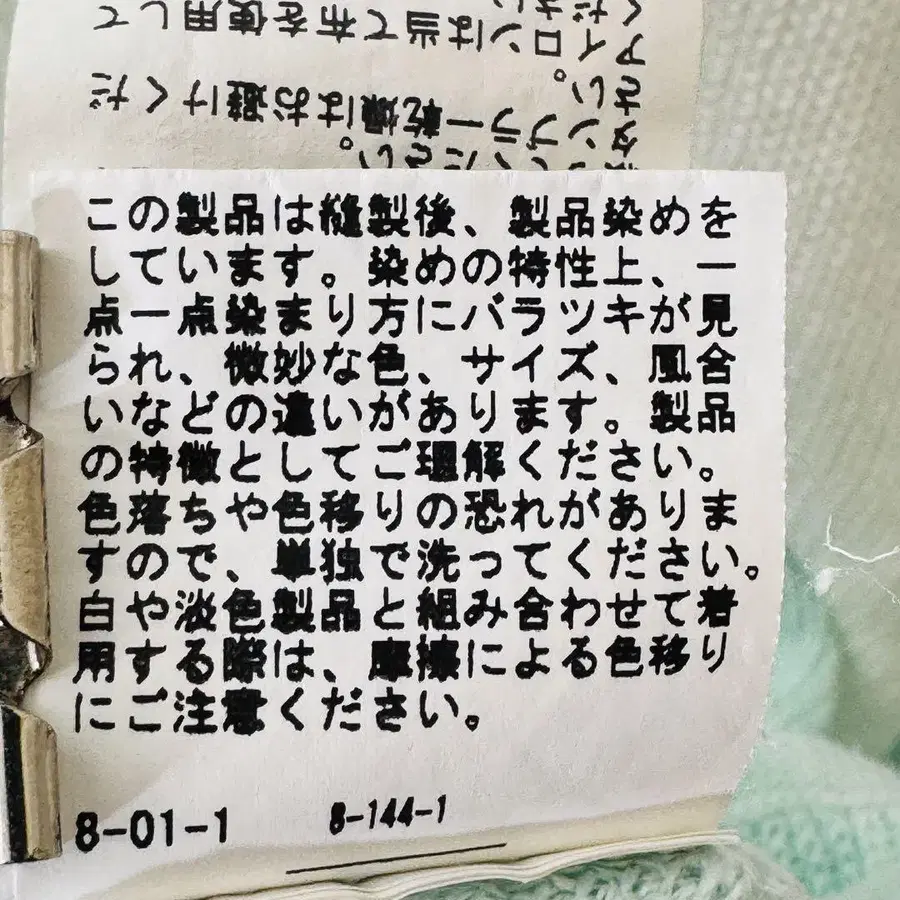 ください。
タンブラー乾燥はお避けくだ
さい。
アイロンは当て布を使用して
ください
この製品は縫製後、製品染めを
しています。染めの特性上、一
点一点染まり方にバラツキが見
られ、微妙な色、サイズ、風合
いなどの違いがあります。製品
の特徴としてご理解ください。
色落ちや色移りの恐れがありま
すので、単独で洗ってください。
白や淡色製品と組み合わせて着
用する際は、摩擦による色移り
にご注意ください。
8-01-1 8-144-1